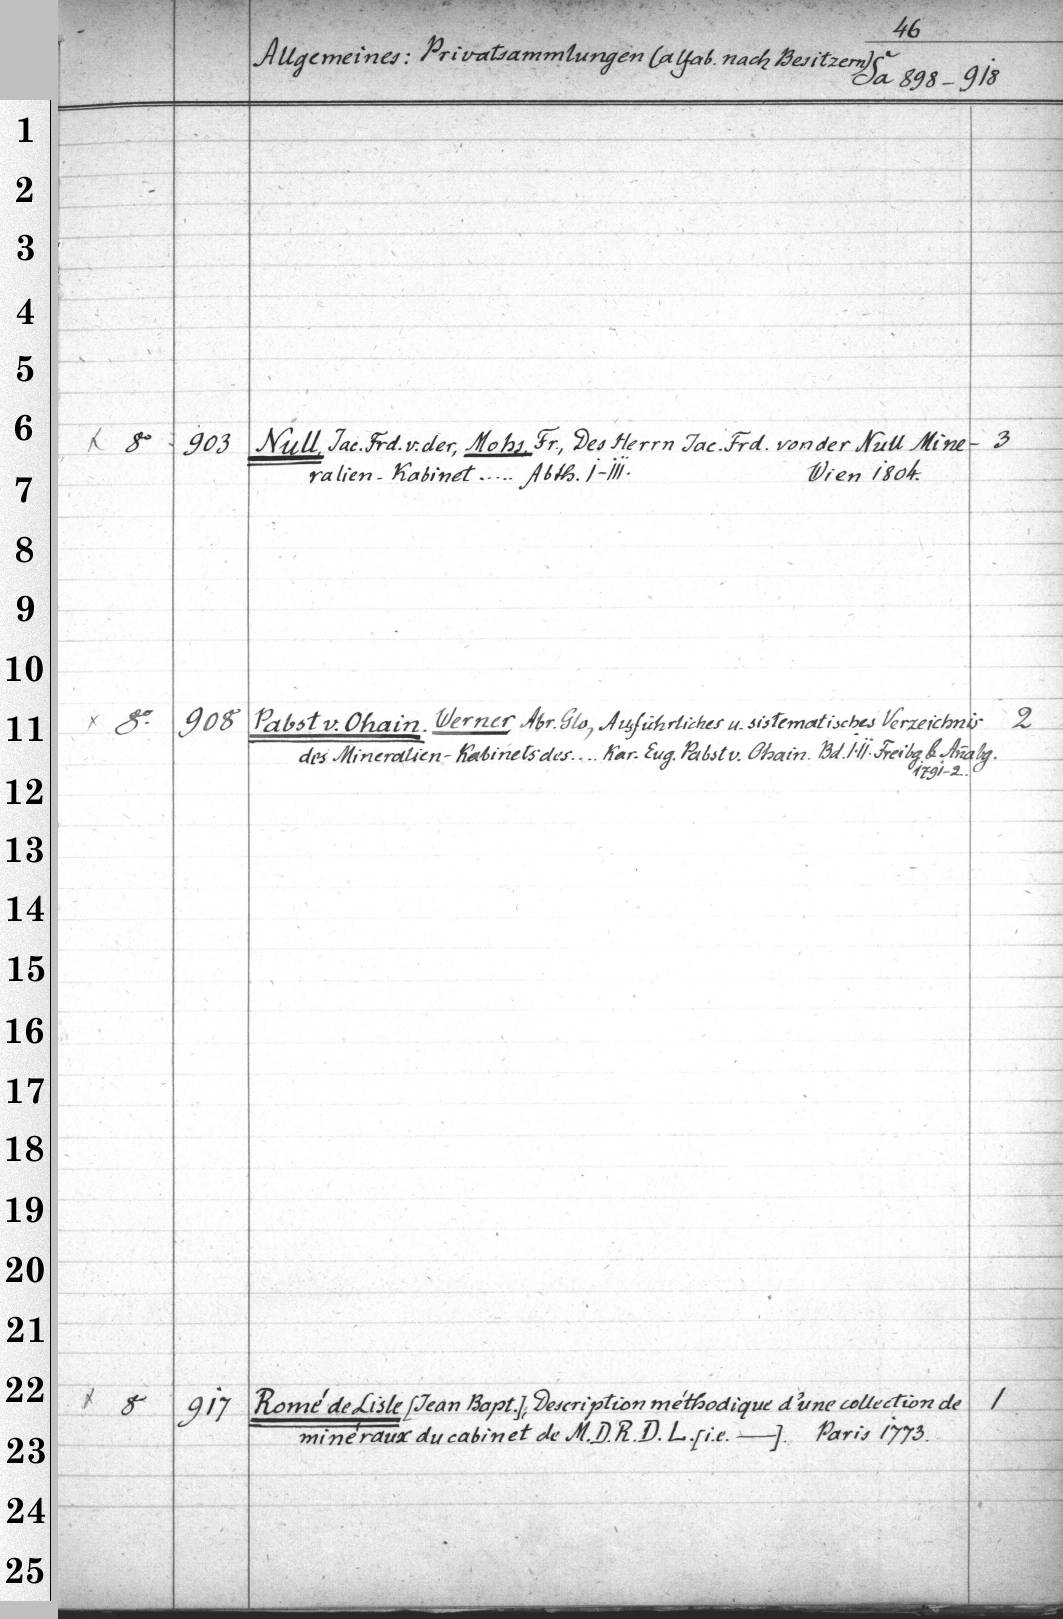 46
Allgemeines: Privatsammlungen (alfab. nach Besitzern) Sa 898-918
1
2
3
4
5
6
x 8° 903 Null, Jac. Frd. v. der, Mohs, Fr., Des Herrn Jac. Frd. von der Null Mine- 3
ralien-Kabinet ..... Abth. I-III. Wien 1804.
7
8
9
10
11
x 8° 908 Pabst v. Ohain. Werner, Abr. Glo, Ausführliches u. sistematisches Verzeichnis 2
des Mineralien-Kabinets des.... Kar. Eug. Pabst v. Ohain. Bd. I-II. Freibg. & Añabg.
1791-2.
12
13
14
15
16
17
18
19
20
21
22
x 8° 917 Romé de Lisle, [Jean Bapt.], Description méthodique d'une collection de 1
minéraux du cabinet de M. D. R. D. L. [i.e. —]. Paris 1773.
23
24
25